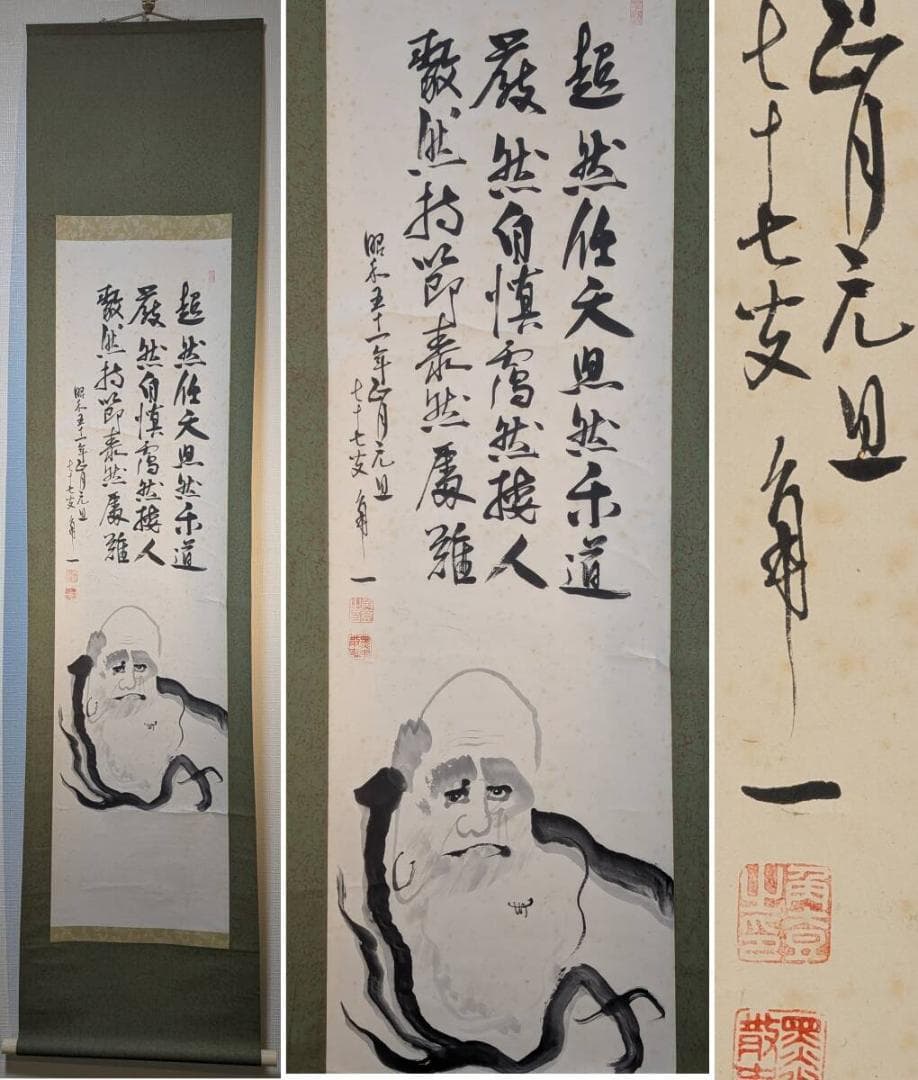 超然任天 然乐道
厳然自慎靄然接人
毅然持節泰然處難
昭和五十一年正月元旦
七十七叟 角 一